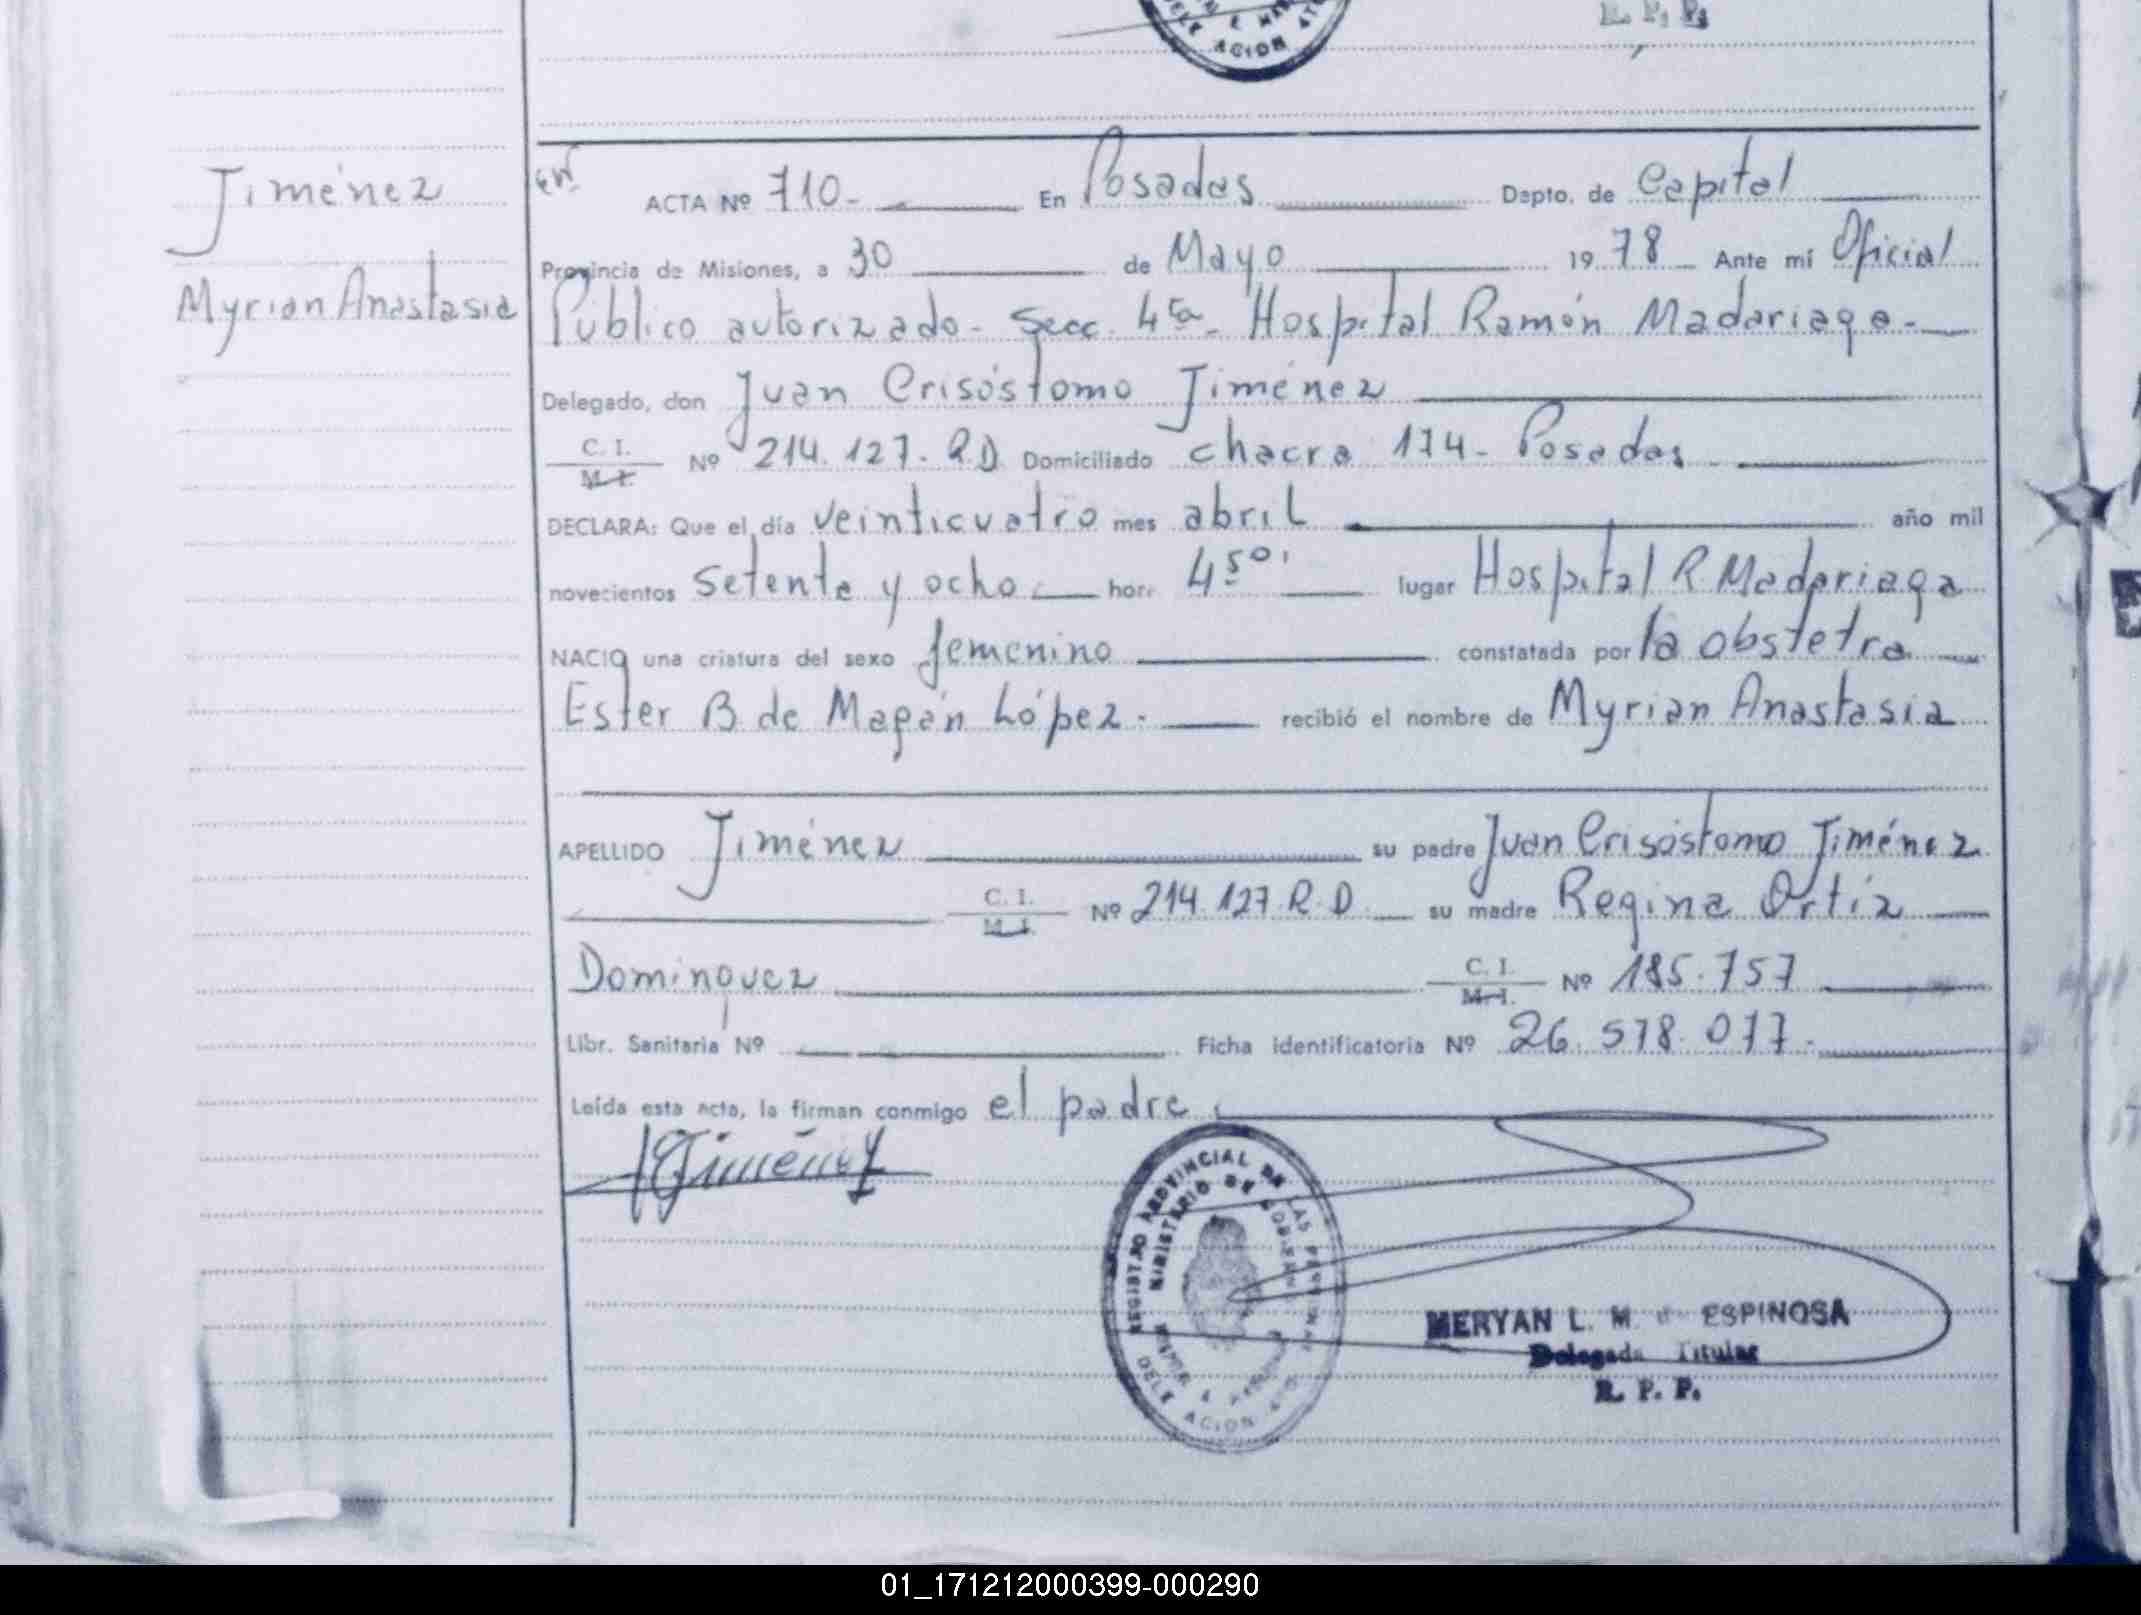 R. P. P.
DELE ACION
Jiménez
Myrian Anastasia
ACTA Nº 710- En Posadas Dpto. de Capital
Provincia de Misiones, a 30 de Mayo 1978 Ante mí Oficial
Publico autorizado- Secc. 4ta- Hospital Ramón Madariaga-
Delegado, don Juan Crisóstomo Jiménez
C. I.
M. I. Nº 214.127. R.D Domiciliado chacra 174- Posadas
DECLARA: Que el día veinticuatro mes abril año mil
novecientos setenta y ocho hora 4 50' lugar Hospital R Madariaga
NACIO una criatura del sexo femenino constatada por la obstetra
Ester B de Magán López. recibió el nombre de Myrian Anastasia
APELLIDO Jiménez su padre Juan Crisóstomo Jiménez
C. I.
M. I. Nº 214.127 R.D su madre Regina Ortiz
Dominguez C. I.
M. I. Nº 185.757
Libr. Sanitaria Nº Ficha identificatoria Nº 26.578.077.
Leída esta acta, la firman conmigo el padre
JJiménez
REGISTRO PROVINCIAL DE LAS PERSONAS
MINISTERIO DE GOBIERNO
DELE ACION
MERYAN L. M. de ESPINOSA
Delegada Titular
R. P. P.
01_171212000399-000290